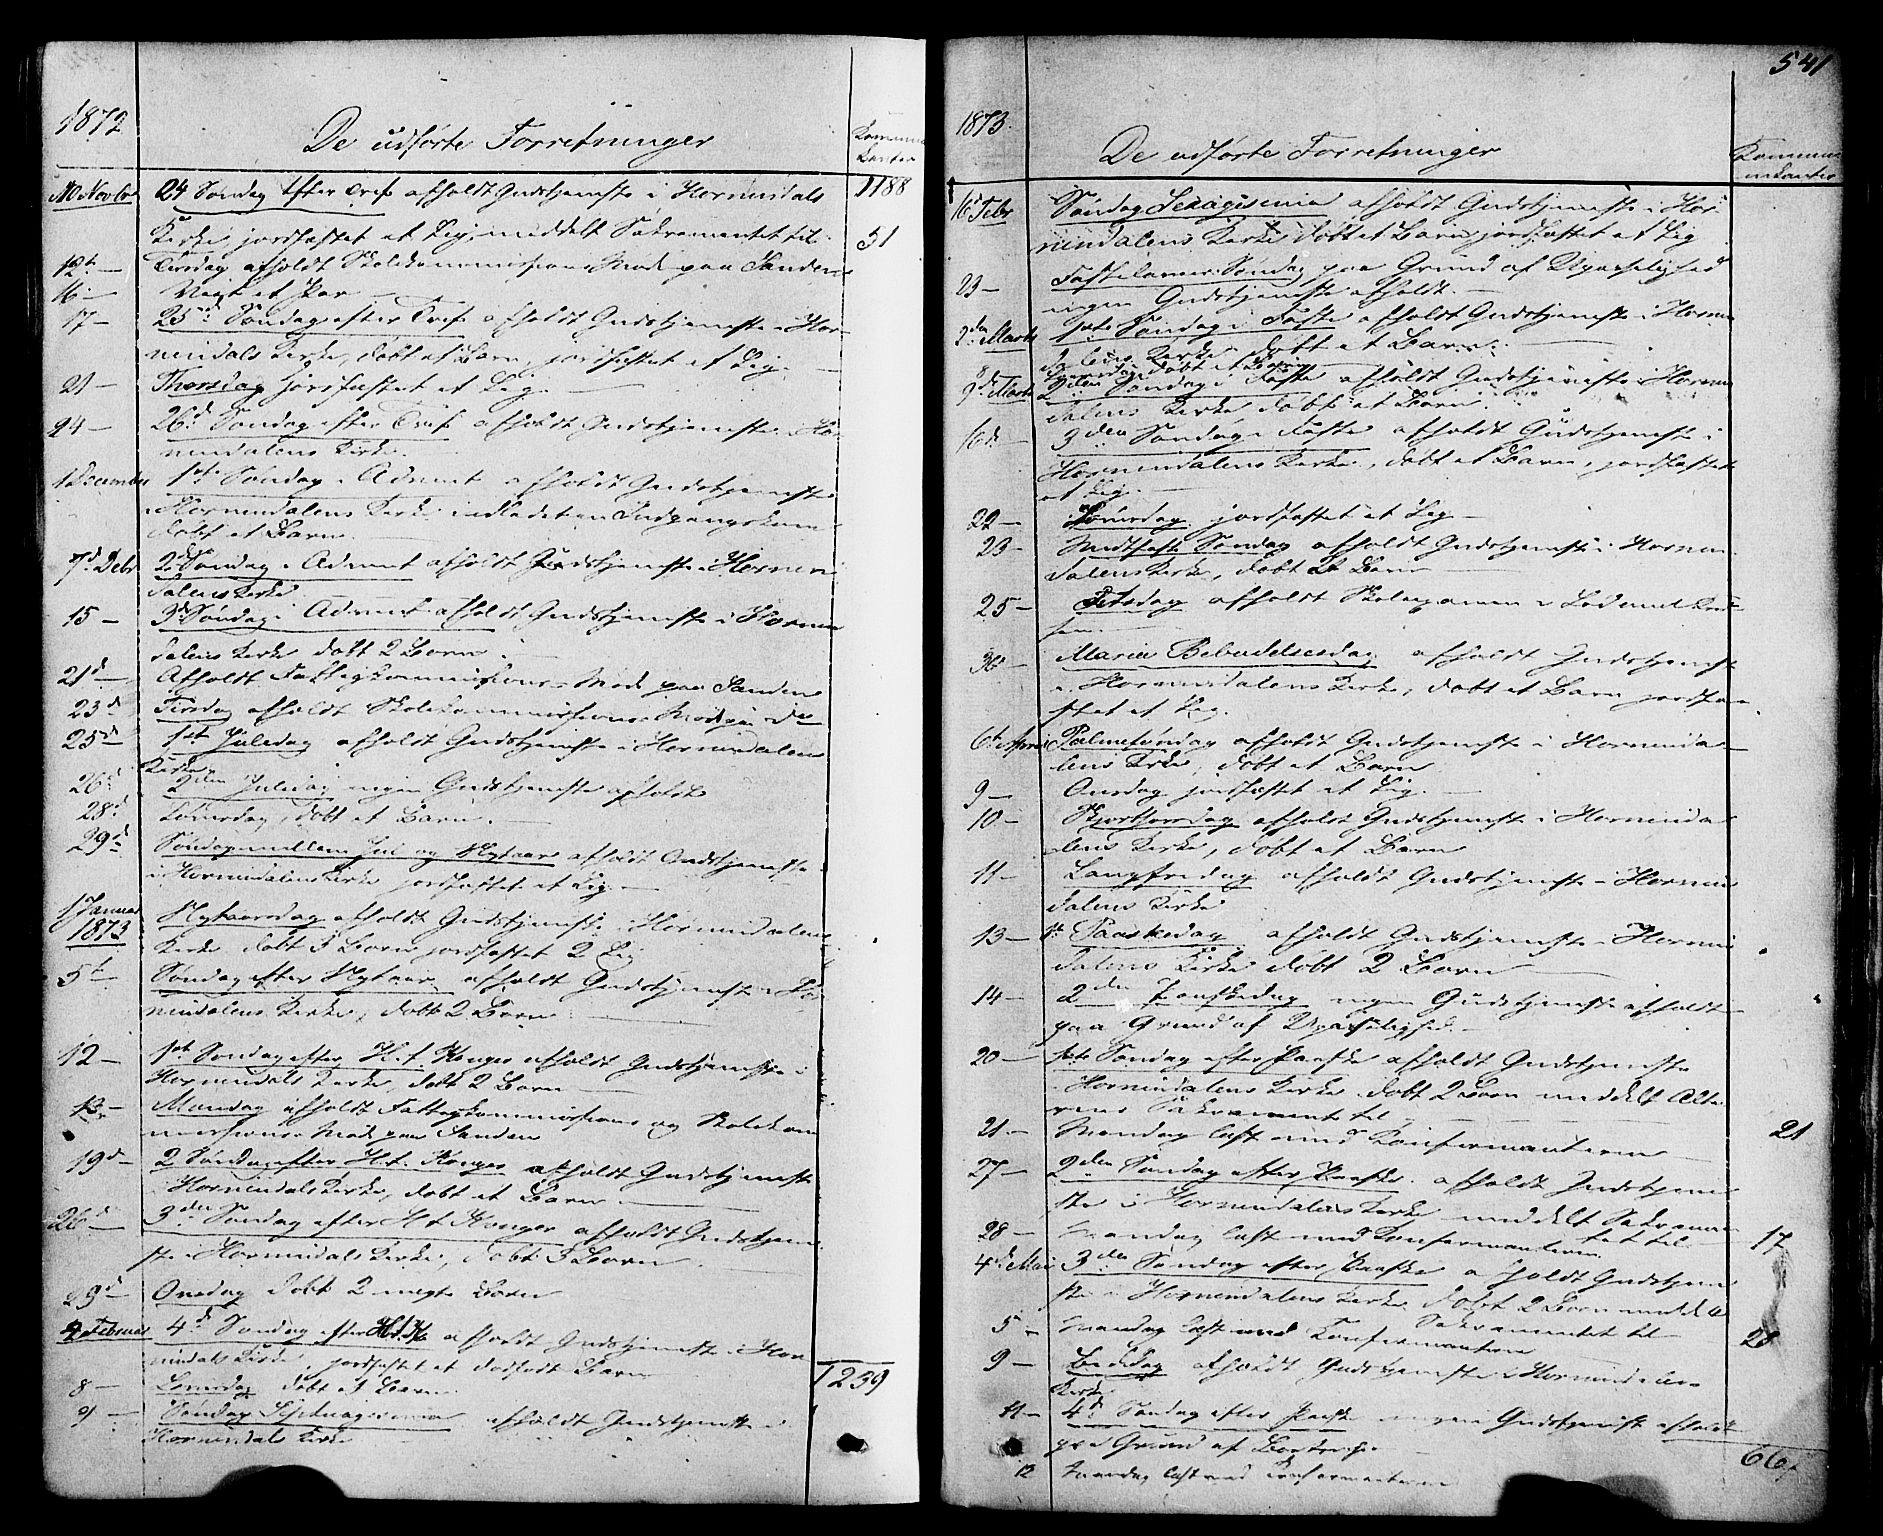 1872
De udførte Forretninger
Kommunikanter
10 Novbr 24 Søndag efter Tref. afholdt Gudstjeneste i Hornindals 1188
Kirke, jordfæstet et Lig, meddelt Sakramentet til 51
12t — Tirsdag afholdt Skolekommissions Møde paa Sanden
16 — Viigt et Par
17 — 25de Søndag efter Tref. afholdt Gudstjeneste i Hor-
nindals Kirke, døbt et Barn, jordfæstet et Lig.
21 — Thorsdag jordfæstet et Lig.
24 — 26d Søndag efter Tref. afholdt Gudstjeneste i Hor-
nindalens Kirke.
1 December 1ste Søndag i Advent afholdt Gudstjeneste
i Hornindalens Kirke, indledet en Indgangskone
døbt et Barn.
7d Debr 2d Søndag i Advent afholdt Gudstjeneste i Hornin-
dalens Kirke
15 — 3d Søndag i Advent afholdt Gudstjeneste i Hornin
dalens Kirke døbt 2 Børn.
21d — Afholdt Fattigkommissions Møde paa Sanden
23d Tirsdag afholdt Skolekommissions Møde paa do
25d — 1ste Juledag afholdt Gudstjeneste i Hornindalens
Kirke
26d 2den Juledag ingen Gudstjeneste afholdt
28d Lørdag, døbt et Barn.
29d Søndag mellem Jul og Nytaar afholdt Gudstjeneste
i Hornindalens Kirke jordfæstet et Lig.
1 Januar Nytaarsdag afholdt Gudstjeneste i Hornindalens
1873 Kirke døbt 3 Børn jordfæstet 2 Lig
5t — Søndag efter Nytaar afholdt Gudstjeneste i Hor-
nindalens Kirke, døbt 2 Børn
12 — 1ste Søndag efter H. t. Konger afholdt Gudstjeneste i
Hornindals Kirke, døbt 2 Børn
13 — Mandag afholdt Fattigkommissions og Skolekom
missions Møde paa Sanden
19d — 2 Søndag efter H. t. Konger afholdt Gudstjeneste
i Hornindals Kirke, døbt et Barn.
26d — 3die Søndag efter H t Konger afholdt Gudstjene
ste i Hornindals Kirke, døbt 3 Børn.
29d — Onsdag døbt 2 uægte Børn
2 Februar 4d Søndag efter H t K afholdt Gudstjeneste i Hor
nindals Kirke, jordfæstet et dødfødt Barn
1239
8 — Lørdag døbt et Barn
9 — Søndag Septuagesima afholdt Gudstjeneste i
Hornindals Kirke
541
1873.
De udførte Forretninger
Kommunikanter
16d Febr Søndag Sexagesima afholdt Gudstjeneste i Hor-
nindalens Kirke døbt et Barn jordfæstet et Lig
23 — Fastelavns Søndag paa Grund af Upasselighed
ingen Gudstjeneste afholdt.
2den Marts 1ste Søndag i Faste afholdt Gudstjeneste i Hornin
dalens Kirke døbt et Barn.
8 Lørdag døbt et Barn
9d Marts 2den Søndag i Faste afholdt Gudstjeneste i Hornin
dalens Kirke døbt et Barn.
16de 3den Søndag i Faste afholdt Gudstjeneste i
Hornindalens Kirke, døbt et Barn, jordfæstet
et Lig.
22 — Lørdag jordfæstet et Lig
23 — Midfaste Søndag afholdt Gudstjeneste i Hornin-
dalens Kirke, døbt et Barn
25 — Tirsdag afholdt Skoleexamen i
30 — Mariæ Bebudelsesdag afholdt Gudstjeneste
i Hornindalens Kirke, døbt et Barn jordfæ-
stet et Lig.
6t April Palmesøndag afholdt Gudstjeneste i Horninda-
lens Kirke, døbt et Barn
9 — Onsdag jordfæstet et Lig.
10 — Skjærthorsdag afholdt Gudstjeneste i Horninda
lens Kirke, døbt et Barn
11 — Langfredag afholdt Gudstjeneste i Hornin
dalens Kirke
13 — 1st Paaskedag afholdt Gudstjeneste i Hornin
dalens Kirke døbt 2 Børn
14 — 2den Paaskedag ingen Gudstjeneste afholdt
paa Grund af Upasselighed.
20 — 1ste Søndag efter Paaske afholdt Gudstjeneste
i Hornindalens Kirke døbt 2 Børn meddelt Alte
rens Sakramente til 21
21 — Mandag læst med Konfirmanterne
27 — 2den Søndag efter Paaske afholdt Gudstjene
ste i Hornindalens Kirke meddelt Sakramen
tet til 17
28 — Mandag læst med Konfirmanterne
4d Mai 3die Søndag efter Paaske afholdt Gudstjene
ste i Hornindalens Kirke døbt 2 Børn meddelt
Sakramentet til 28
5 — Mandag læst med Konfirmanterne
9 — Bededag afholdt Gudstjeneste i Hornindalens
Kirke
11 — 4d Søndag efter Paaske ingen Gudstjeneste afholdt
paa Grund af
66
12 Mandag læst med Konfirmanterne